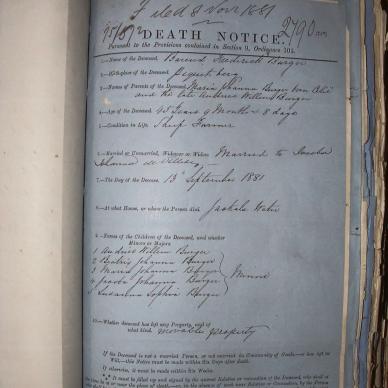 Filed 8 Novr 1881
2790
DEATH NOTICE.
Pursuant to the Provisions contained in Section 9, Ordinance 104.
1.—Name of the Deceased, Barend Frederick Burger
2.—Birth-place of the Deceased,
3.—Names of Parents of the Deceased, Maria Johanna Burger born
and the late Andries Willem Burger
4.—Age of the Deceased, 45 Years 9 Months 8 days
5.—Condition in Life, Sheep Farmer
6.—Married or Unmarried, Widower or Widow, Married to Jacoba
Johanna de Villiers
7.—The Day of the Decease, 13th September 1881
8.—At what House, or where the Person died, Jackals Water
9.—Names of the Children of the Deceased, and whether
Minors or Majors
1 Andries Willem Burger
2 Beatrix Johanna Burger
3 Maria Johanna Burger
4 Jacoba Johanna Burger
5 Susanna Sophia Burger
Minors
10.—Whether deceased has left any Property, and of
what kind, movable property
If the Deceased is not a married Person, or not married in Community of Goods—or has left no
Will,—this Notice must be made within Six Days after Death.
If otherwise, it must be made within Six Weeks.